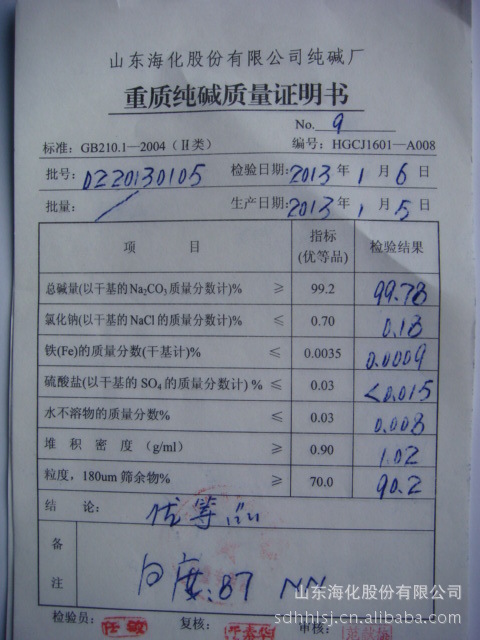 山东海化股份有限公司纯碱厂
重质纯碱质量证明书
No. 9
标准：GB210.1—2004（Ⅱ类） 编号：HGCJ1601—A008
批号：DZ20130105 检验日期：2013年1月6日
批量： 生产日期：2013年1月5日
项 目 指标(优等品) 检验结果
总碱量(以干基的Na₂CO₃质量分数计)% ≥ 99.2 99.78
氯化钠(以干基的NaCl的质量分数计)% ≤ 0.70 0.18
铁(Fe)的质量分数(干基计)% ≤ 0.0035 0.0009
硫酸盐(以干基的SO₄的质量分数计) % ≤ 0.03 <0.015
水不溶物的质量分数% ≤ 0.03 0.008
堆 积 密 度 (g/ml) ≥ 0.90 1.02
粒度，180um 筛余物% ≥ 70.0 90.2
结 论： 优等品
备注 白度：87
检验员： 任敏 复核： 审核：
山东海化股份有限公司
sdhhlsj.1688.com